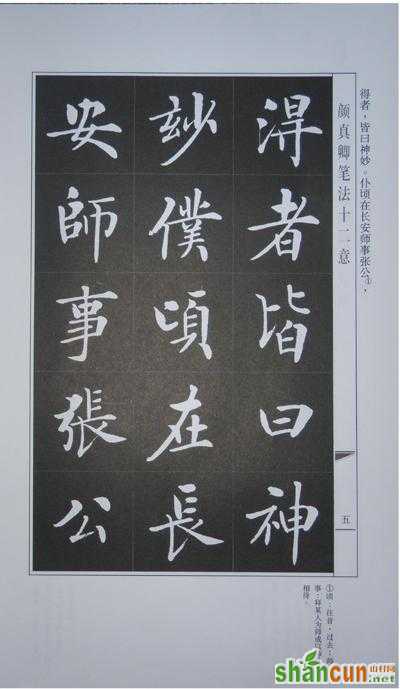 得者，皆曰神妙。仆顷在长安师事张公①，
颜真卿笔法十二意
得者皆曰神
玅僕頃在長
安師事張公
五
①顷：往昔，过去；师
事：拜某人为师或以
相待。
shancun
山村网
.net